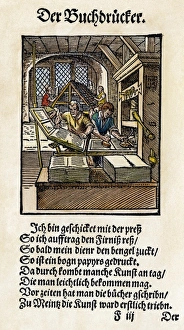 Der Buchdrücker.
Ich bin geschicket mit der preß
So ich aufftrag den Firniß reß/
So bald mein dienr den bengel zuckt/
So ist ein bogn papyrs gedruckt.
Da durch kombt manche Kunst an tag/
Die man leichtlich bekommen mag.
Vor zeiten hat man die bücher gschribn/
Zu Meintz die Kunst ward erstlich triebn.
F iij Der